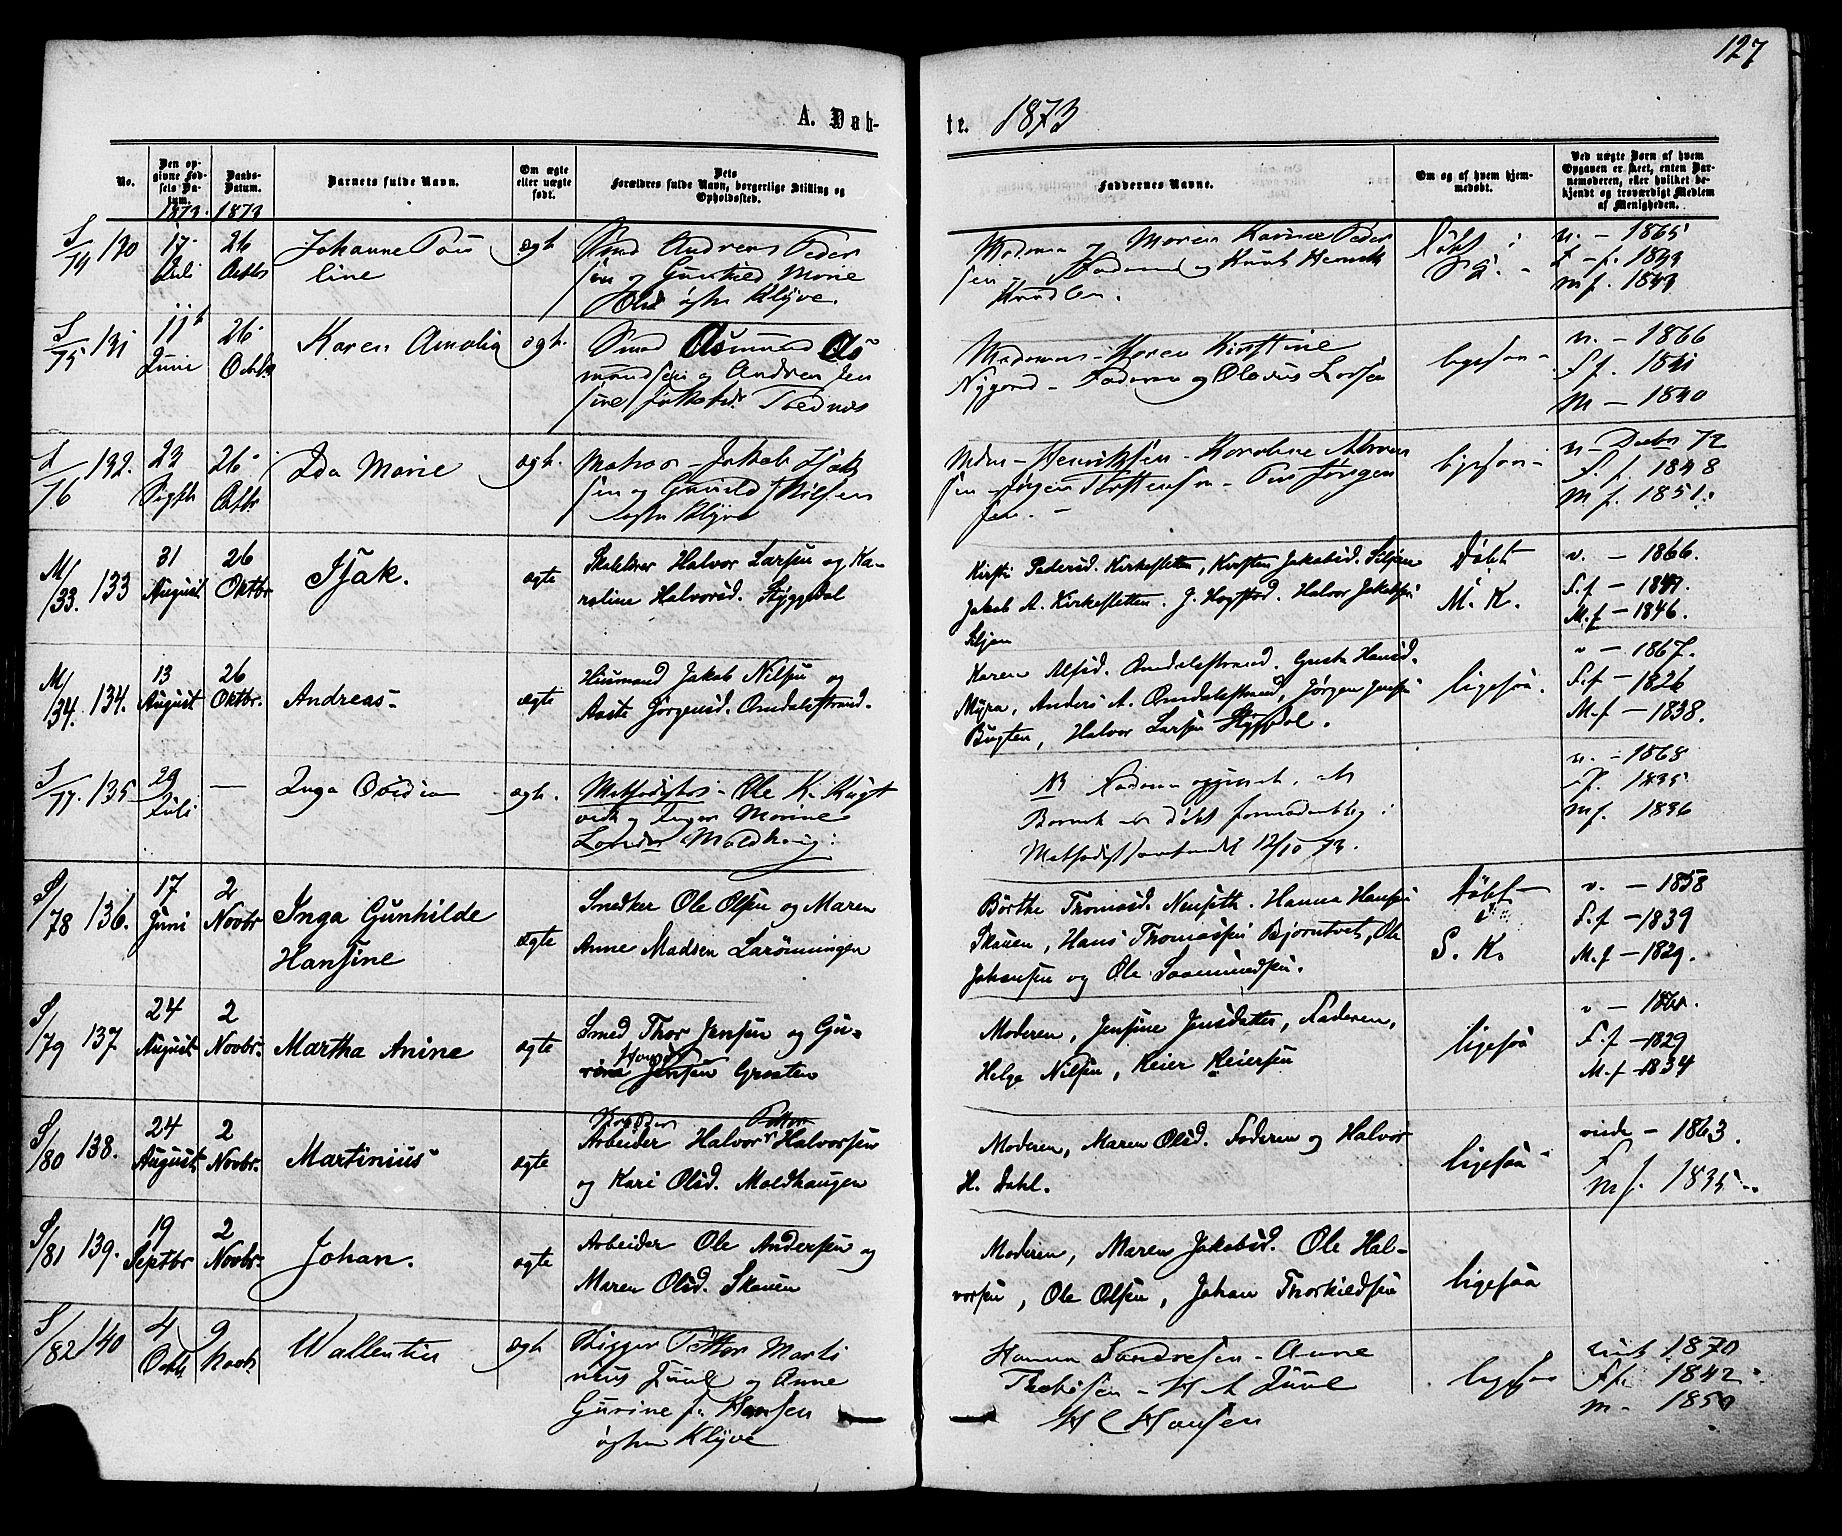 127
A. Døb-
te. 1873
No.
Den opgivne Fødsels Datum.
Daabs-Datum.
Barnets fulde Navn.
Om ægte eller uægte født.
Dets
Forældres fulde Navn, borgerlige Stilling og Opholdssted.
Faddernes Navne.
Om og af hvem hjemmedøbt.
Ved uægte Børn af hvem Opgaven er skeet, enten Barnemoderen, eller hvilket bekjendt og troværdigt Medlem af Menigheden.
1873. 1873
S/74 130 17 Juli 26 Octbr Johanne Pau
line ægt.
Smed Andreas Peder
sen og Gunhild Marie
Olsd Klyve.
Madamen Maren Karine Peder
sen Faderen og Knut Henrik
Knudsen.
Døbt
v. - 1865
F. f. 1843
m f. 1843
S/75 131 11 Juni 26 Octbr Karen Amalia ægt.
Smed Asmund As
mundsen og Andrea Jen
sine Jakobsd.
Madamen Karen Kirstine
Nygaard - Faderen og Olavus Larsen
ligesaa -
v. - 1866
F f. 1841
M - 1840
S/76 132. 23 Septb 26 Octbr Ida Marie ægt.
Matros - Jakob Isak
sen og Gunild Nilsen
Klyve
Mdm - Henriksen - Karoline
sen - Jørgen Torstensen - Jørgen
sen. -
ligesaa -
v - Decbr 72
F. f. 1848
m f. 1851.
M/33. 133 31 August 26 Oktbr Isak. ægte
Skolelærer Halvor Larsen og Ka-
roline Halvorsd. Styggdal
Kirsti Pedersd. Kirkesletten, Kirsten Jakobsd. Siljan
Jakob A. Kirkesletten. J. Hogstad. Halvor Jakobsen
Siljan
Døbt
M. K.
v. - 1866.
F. f - 1847.
M. f - 1846.
M/34. 134. 13 August 26 Oktbr. Andreas - ægte
Husmand Jakob Nilsen og
Aaste Jørgensd. Omdalsstrand.
Karen Alfsd. Omdalsstrand. Gusta Hansd.
Myra, Anders A. Omdalsstrand, Jørgen Jensen
Bugten, Halvor Larsen Styggdal.
ligesaa.
v - 1867.
F. f - 1826
M. f - 1838.
S/77. 135 29 Juli - Inga Ovidia ægt.
Methodister - Ole K.
og Inger Marine
Moldhaug.
NB Faderen opgivet, at
Barnet er døbt formodentlig i
Methodistsamfundet 12/10 73.
v. - 1868
f. 1835
m f. 1836
S/78 136. 17 Juni 2 Novbr Inga Gunhilde
Hansine ægte
Snedker Ole Olsen og Maren
Anne Madsen Larønningen
Børthe Thomasd. Nensett. Hanna Hansen
Skauen, Hans Thomassen Bjorntvet, Ole
Johansen og Ole Saamundsen.
Døbt
S. K.
v. - 1858
F. f - 1839
M. f - 1829.
S/79 137 24 August 2 Novbr. Martha Anine ægte
Smed Thor Jensen og Gu-
rine Jensen Graaten
Moderen, Jensine Jensdatter, Faderen,
Helge Nilsen, Reier Reiersen
ligesaa
v - 1860.
F. f - 1829
M. f - 1834
S/80 138. 24 August 2 Novbr. Martinius ægte
Arbeider Halvor Halvorsen
og Kari Olsd. Moldhaugen
Moderen, Maren Olsd. Faderen og Halvor
H. Dahl.
ligesaa
vide - 1863.
F
m f. 1835 -
S/81 139. 19 Septbr 2 Novbr. Johan. ægte
Arbeider Ole Andersen og
Maren Olsd. Skauen
Moderen, Maren Jakobsd. Ole Hal-
vorsen, Ole Olsen, Johan Thorkildsen
ligesaa
S/82 140 4 Octb 9 Novb Wallentin ægt
Ligger Petter Marti
nius Juul og Anne
Gurine f. Hansen
Klyve
Hanna Sandersen - Anne
Thobisen - H A Juul
H C Hansen
ligesaa
vide 1870
F f. 1842
m. 1850